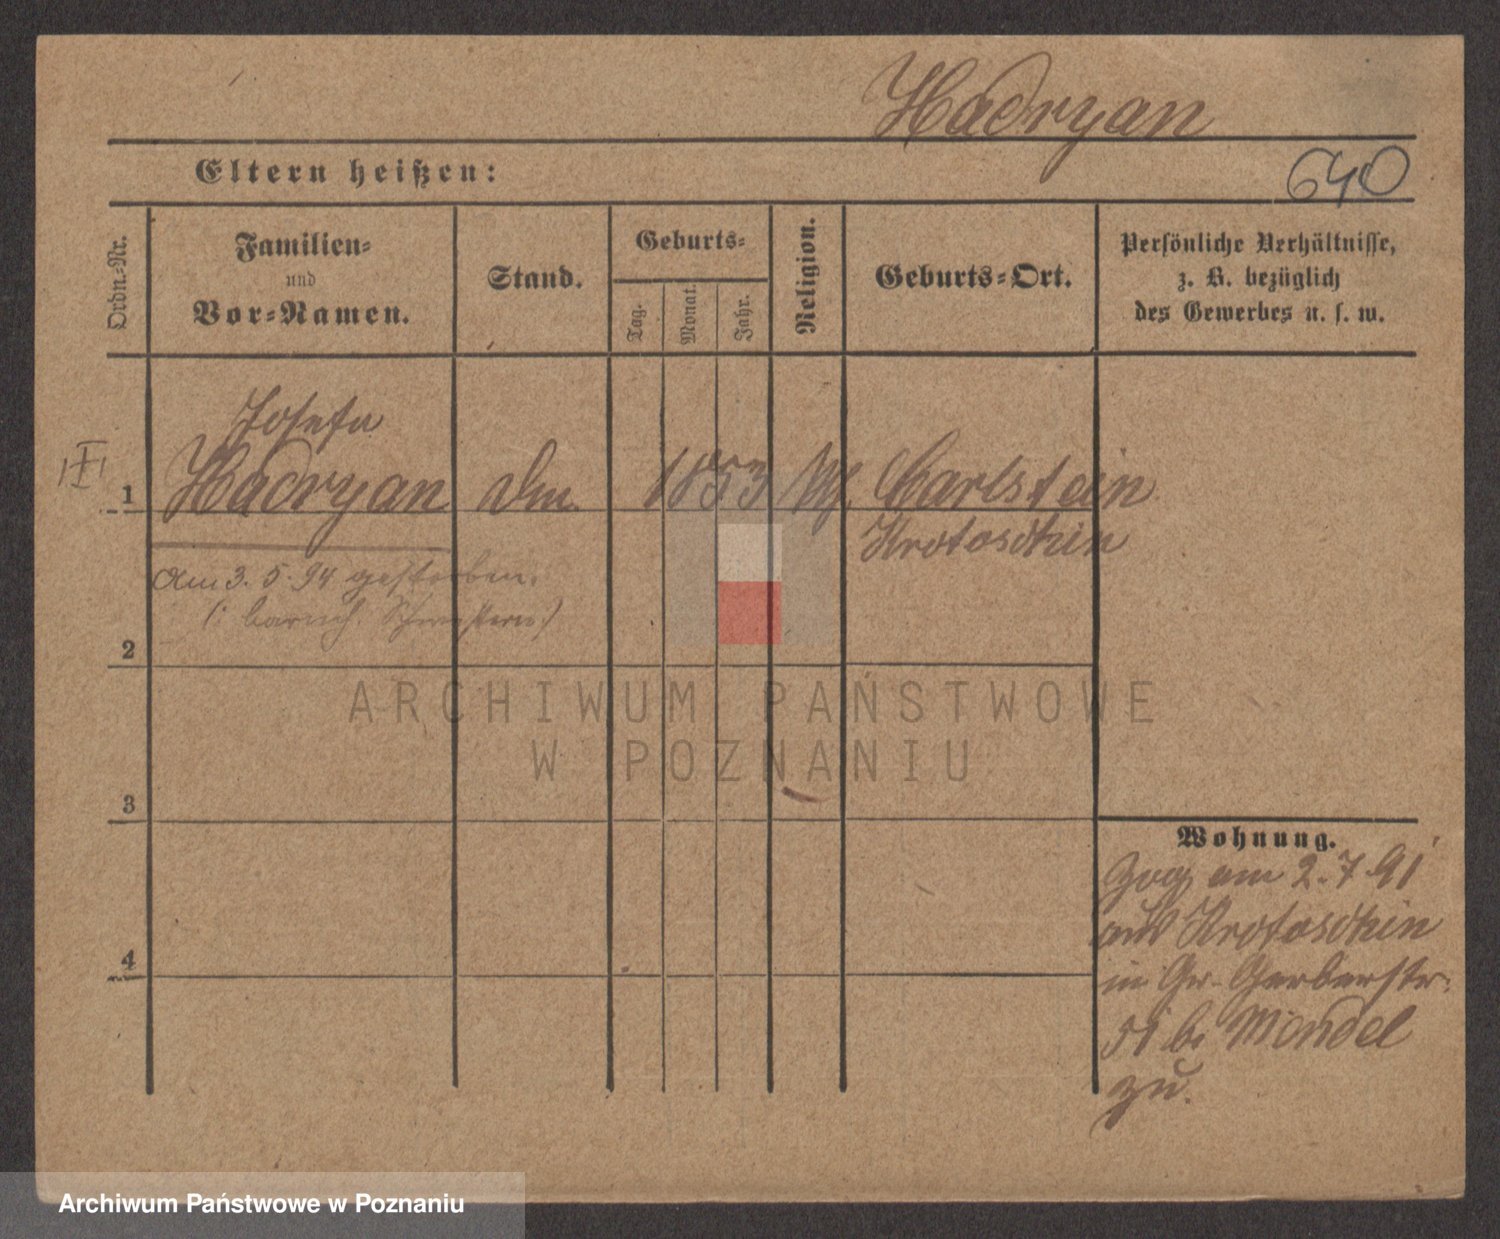 Hadryan
Eltern heißen:
640
Ordn.-Nr.
Familien-
und
Vor-Namen.
Stand.
Geburts-
Tag.
Monat.
Jahr.
Religion.
Geburts-Ort.
Persönliche Verhältnisse,
z. B. bezüglich
des Gewerbes u. s. w.
Josefa
III
1
Hadryan
1853
Carlstein
Krotoschin
am 3. 5. 94 gestorben.
(: barmh. Schwestern)
2
ARCHIWUM PAŃSTWOWE
W POZNANIU
3
4
Wohnung.
Zog am 2.7.91
aus Krotoschin
in Gr. Gerberstr.
51 bei Mendel
zu.
Archiwum Państwowe w Poznaniu